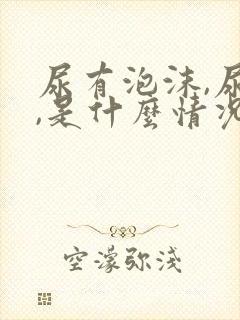 尿有泡沫,尿
,是什麼情況
空濛弥淺